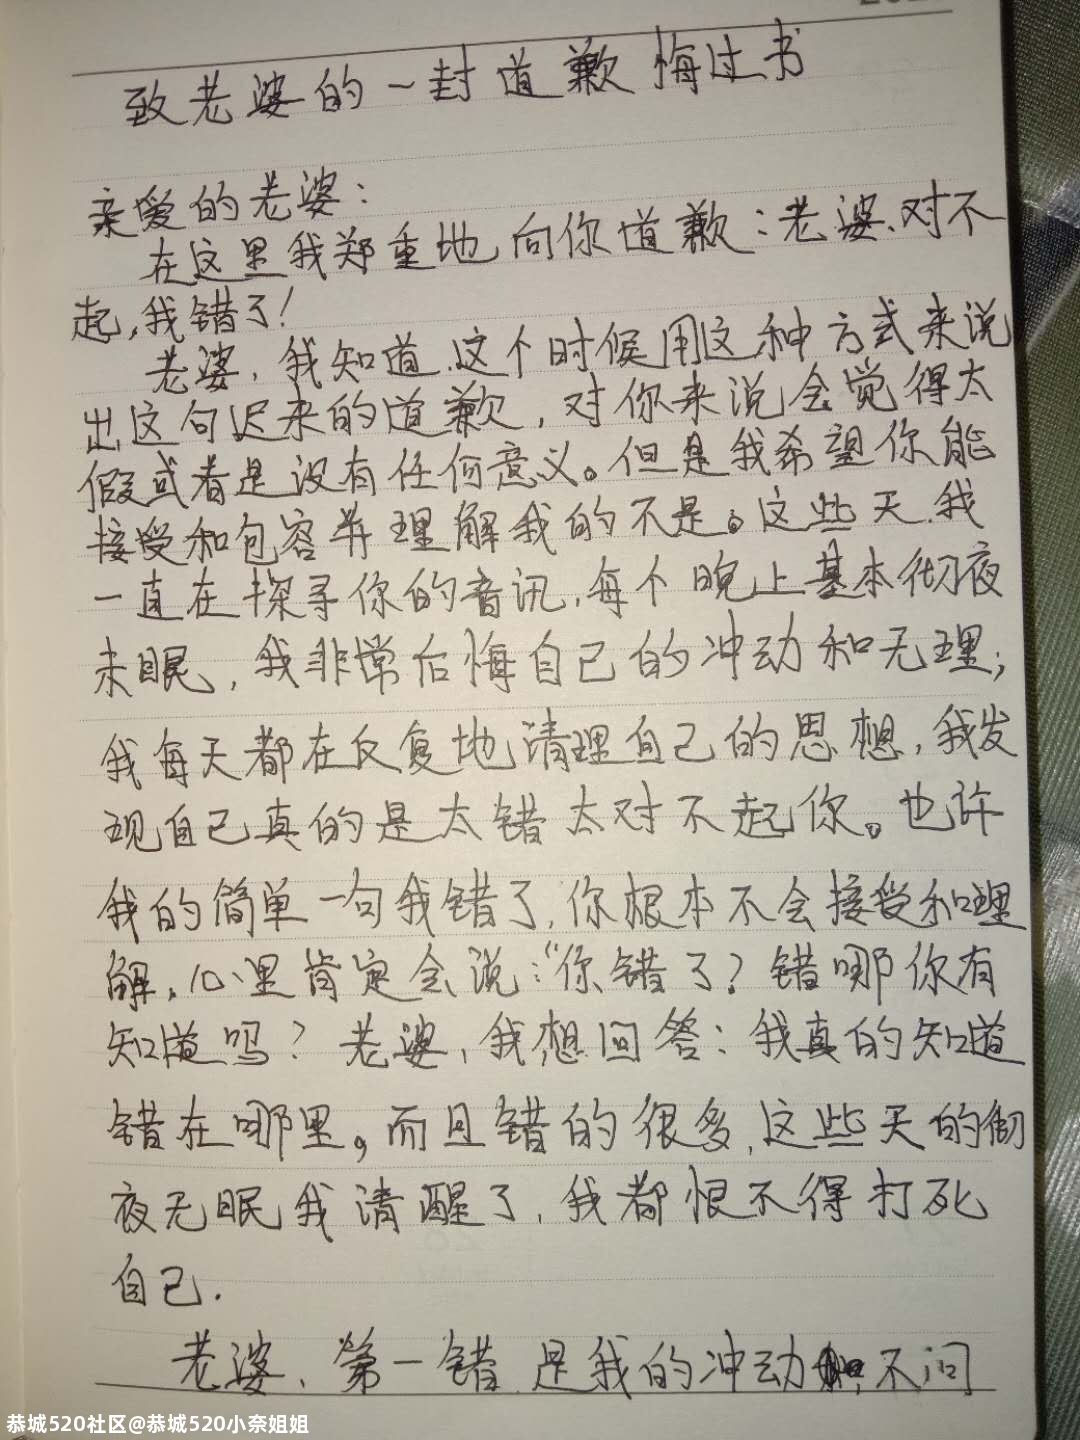 致老婆的一封道歉悔过书
亲爱的老婆：
在这里我郑重地向你道歉：老婆、对不
起，我错了！
老婆，我知道、这个时候用这种方式来说
出这句迟来的道歉，对你来说会觉得太
假或者是没有任何意义。但是我希望你能
接受和包容并理解我的不是。这些天、我
一直在探寻你的音讯，每个晚上基本彻夜
未眠，我非常后悔自己的冲动和无理；
我每天都在反复地清理自己的思想，我发
现自己真的是太错太对不起你。也许
我的简单一句我错了，你根本不会接受和理
解，心里肯定会说：“你错了？错哪你有
知道吗？老婆，我想回答：我真的知道
错在哪里。而且错的很多，这些天的彻
夜无眠我清醒了，我都恨不得打死
自己．
老婆、第一错、是我的冲动，不问
恭城520社区@恭城520小奈姐姐